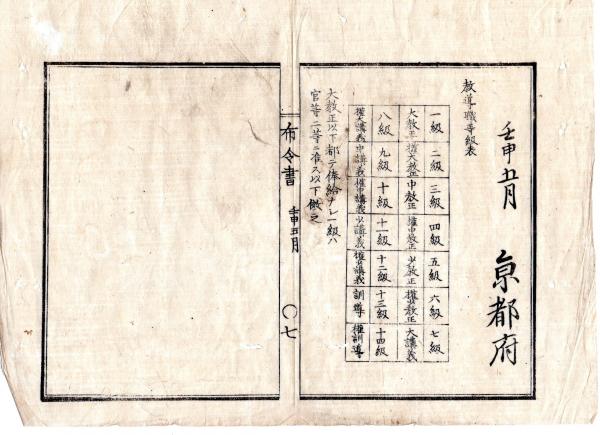 壬申五月 亰都府
教導職等級表
一級 二級 三級 四級 五級 六級 七級
大教正 權大教正 中教正 權中教正 少教正 權少教正 大講義
八級 九級 十級 十一級 十二級 十三級 十四級
權大講義 中講義 權中講義 少講義 權少講義 訓導 權訓導
大教正以下都テ俸給ナシ一級ハ
官等二等ニ准ス以下傚之
布令書 壬申五月 〇七